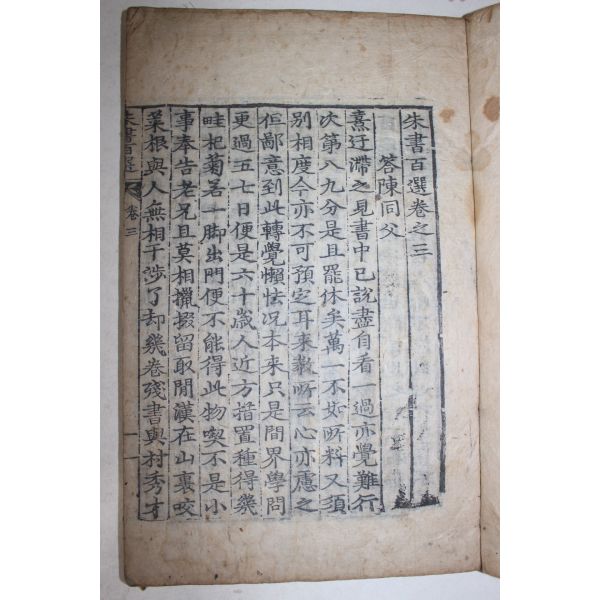 朱書百選卷之三
答陳同父
熹迂滯之見書中已說盡自看一過亦覺難行
次第八九分是且罷休矣萬一不如所料又須
別相度今亦不可預定耳來敎所云心亦慮之
但鄙意到此轉覺懶怯况本來只是間界學問
更過五七日便是六十歲人近方措置種得幾
畦杞菊若一脚出門便不能得此物喫不是小
事奉告老兄且莫相攛掇留取閒漢在山裏咬
菜根與人無相干涉了却幾卷殘書與村秀才
朱書百選
卷三
一